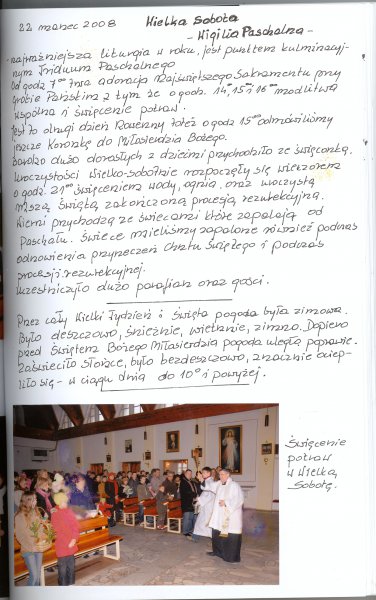 22 marzec 2008 Wielka Sobota
- Wigilia Paschalna -
- najważniejsza liturgia w roku, jest punktem kulminacyj-
nym Triduum Paschalnego
Od godz 7ºº trwa adoracja Najświętszego Sakramentu przy
Grobie Pańskim z tym że o godz. 14, 15 i 16ºº modlitwa
wspólna i święcenie potraw.
Jest to drugi dzień Nowenny toteż o godz 15ºº odmówiliśmy
jeszcze Koronkę do Miłosierdzia Bożego.
Bardzo dużo dorosłych z dziećmi przychodziło ze święconką.
Uroczystości Wielko-sobotnie rozpoczęły się wieczorem
o godz. 21ºº święceniem wody, ognia, oraz uroczystą
Mszą Świętą, zakończoną procesją rezurekcyjną.
Wierni przychodzą ze świecami które zapalają od
Paschału. Świece mieliśmy zapalone również podczas
odnowienia przyrzeczeń Chrztu Świętego i podczas
procesji rezurekcyjnej.
Uczestniczyło dużo parafian oraz gości.
Przez cały Wielki Tydzień i Święta pogoda była zimowa.
Było deszczowo, śnieżnie, wietrznie, zimno. Dopiero
przed Świętem Bożego Miłosierdzia pogoda uległa poprawie.
Zaświeciło słońce, było bezdeszczowo, znacznie ociep-
liło się - w ciągu dnia do 10º i powyżej.
Święcenie
potraw
w Wielką
Sobotę.